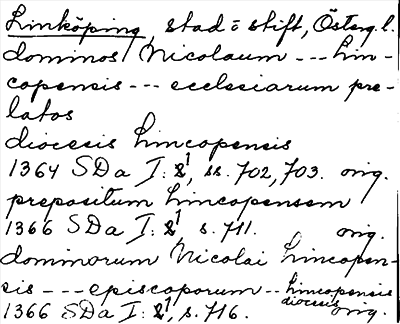 Linköping, stad o stift, Österg. l.
dominos Nicolaum --- lin-
copensis --- ecclesiarum pre-
latos
diocesis lincopensis
1364 SDa I: 1, ss. 702, 703. orig.
prepositum lincopensem
1366 SDa I: 1, s. 711. orig.
dominorum Nicolai lincopen-
sis --- episcoporum -- lincopensis
diocesis
1366 SDa I: 1, s. 716. orig.